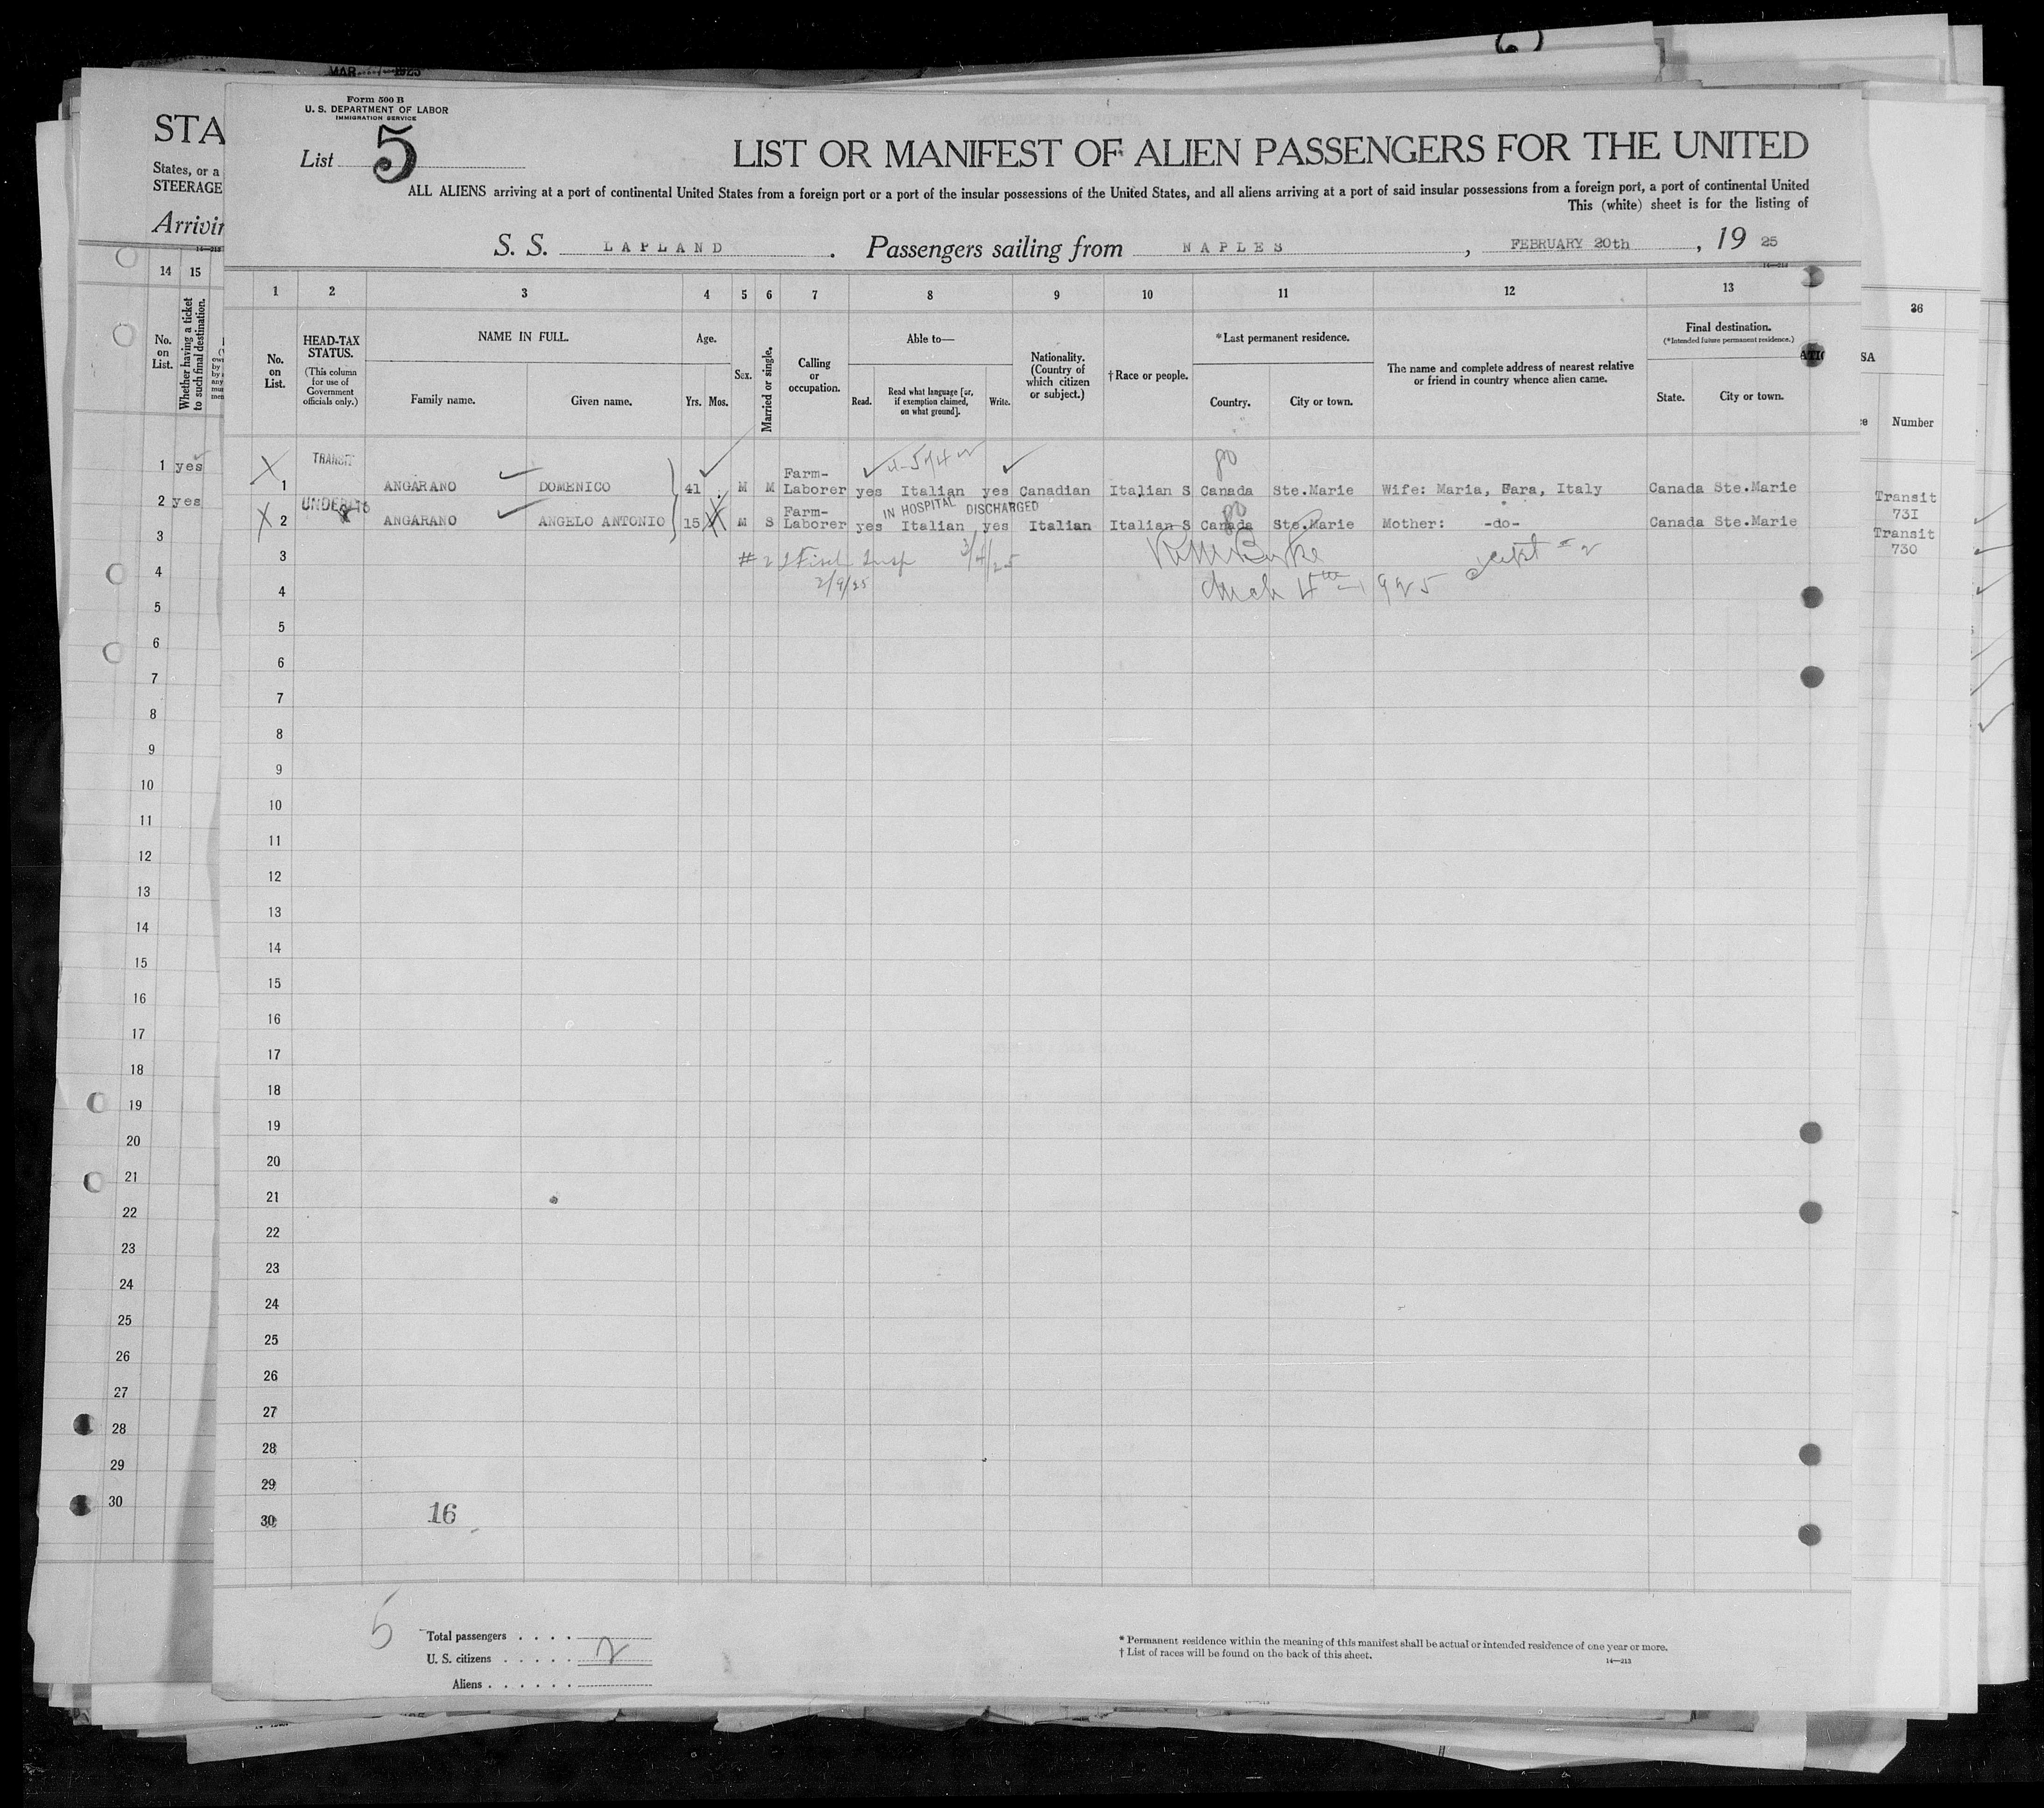 MAR 1925
STA
States, or a
STEERAGE
Arrivin
Form 500 B
U. S. DEPARTMENT OF LABOR
IMMIGRATION SERVICE
List 5
LIST OR MANIFEST OF ALIEN PASSENGERS FOR THE UNITED
ALL ALIENS arriving at a port of continental United States from a foreign port or a port of the insular possessions of the United States, and all aliens arriving at a port of said insular possessions from a foreign port, a port of continental United
This (white) sheet is for the listing of
S. S. LAPLAND. Passengers sailing from NAPLES, FEBRUARY 20th, 19 25
14 15
No. on List.
Whether having a ticket to such final destination.
1 2 3 4 5 6 7 8 9 10 11 12 13
36
No. on List.
HEAD-TAX STATUS.
(This column for use of Government officials only.)
NAME IN FULL.
Family name.
Given name.
Age.
Yrs. Mos.
Sex.
Married or single.
Calling or occupation.
Able to—
Read.
Read what language [or, if exemption claimed, on what ground].
Write.
Nationality. (Country of which citizen or subject.)
† Race or people.
* Last permanent residence.
Country.
City or town.
The name and complete address of nearest relative or friend in country whence alien came.
Final destination.
(*Intended future permanent residence.)
State.
City or town.
SA
Number
1 yes
2 yes
TRANSIT
1 ANGARANO DOMENICO 41 M M Farm-Laborer yes Italian yes Canadian Italian S Canada Ste.Marie Wife: Maria, Fara, Italy Canada Ste.Marie
Transit 731
IN HOSPITAL DISCHARGED
2 ANGARANO ANGELO ANTONIO 15 M S Farm-Laborer yes Italian yes Italian Italian S Canada Ste.Marie Mother: -do- Canada Ste.Marie
Transit 730
# 2 Insp 3/4/25
2/9/25
4th 1925
3
4
5
6
7
8
9
10
11
12
13
14
15
16
17
18
19
20
21
22
23
24
25
26
27
28
29
30
3
4
5
6
7
8
9
10
11
12
13
14
15
16
17
18
19
20
21
22
23
24
25
26
27
28
29
30
16
5
Total passengers . . . .
U. S. citizens . . . . . 2
Aliens . . . . . .
* Permanent residence within the meaning of this manifest shall be actual or intended residence of one year or more.
† List of races will be found on the back of this sheet.
14—213